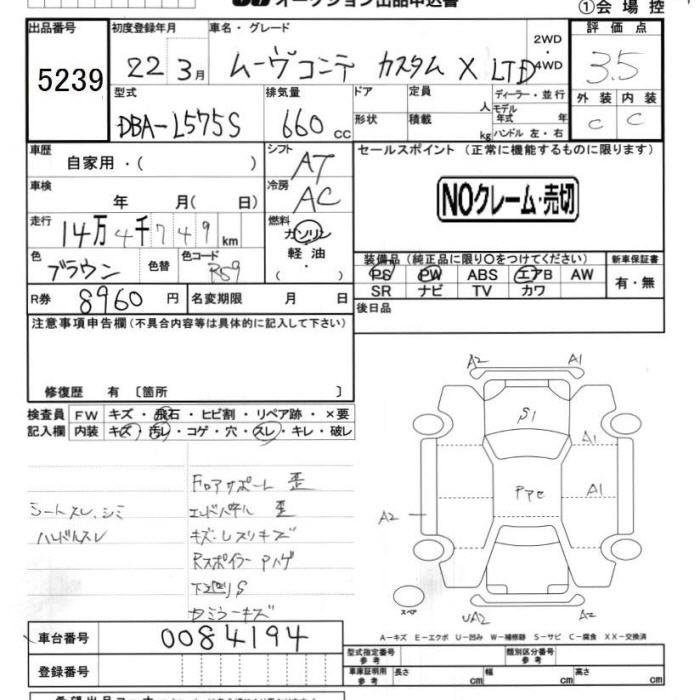 オークション出品申込書
①会場控
出品番号 初度登録年月 車名・グレード 評価点
5239
22年3月 ムーヴコンテ カスタム X LTD 2WD・4WD 3.5
型式 排気量 ドア 定員 人 ディーラー・並行 外装 内装
DBA-L575S 660cc 形状 積載 kg モデル年式 年 ハンドル 左・右 C C
車歴 自家用・( ) シフト AT セールスポイント (正常に機能するものに限ります)
車検 年 月( 日) 冷房 AC
NOクレーム・売切
走行 14万4千749km 燃料 ガソリン 軽油 ( ・ )
色 ブラウン 色替 色コード R59
装備品 (純正品に限り○をつけてください) 新車保証書
PS PW ABS エアB AW 有・無
SR ナビ TV カワ
R券 8960円 名変期限 月 日 後日品
注意事項申告欄(不具合内容等は具体的に記入して下さい)
修復歴 有 〔箇所 〕
検査員 FW キズ・飛石・ヒビ割・リペア跡・×要
記入欄 内装 キズ・汚レ・コゲ・穴・スレ・キレ・破レ
Fロアサポート 歪
シートスレ、シミ エンドパネル 歪
ハンドルスレ キズ・レスリキズ
Rスポイラー Pハゲ
下回りS
ミラーキズ
A2 A1
S1
A1
A1
A2
UA2 A2
スペア
A-キズ E-エクボ U-凹み W-補修跡 S-サビ C-腐食 XX-交換済
車台番号 0084194
型式指定番号 参考 類別区分番号 参考
登録番号 車庫証明用 参考 長さ cm 幅 cm 高さ cm